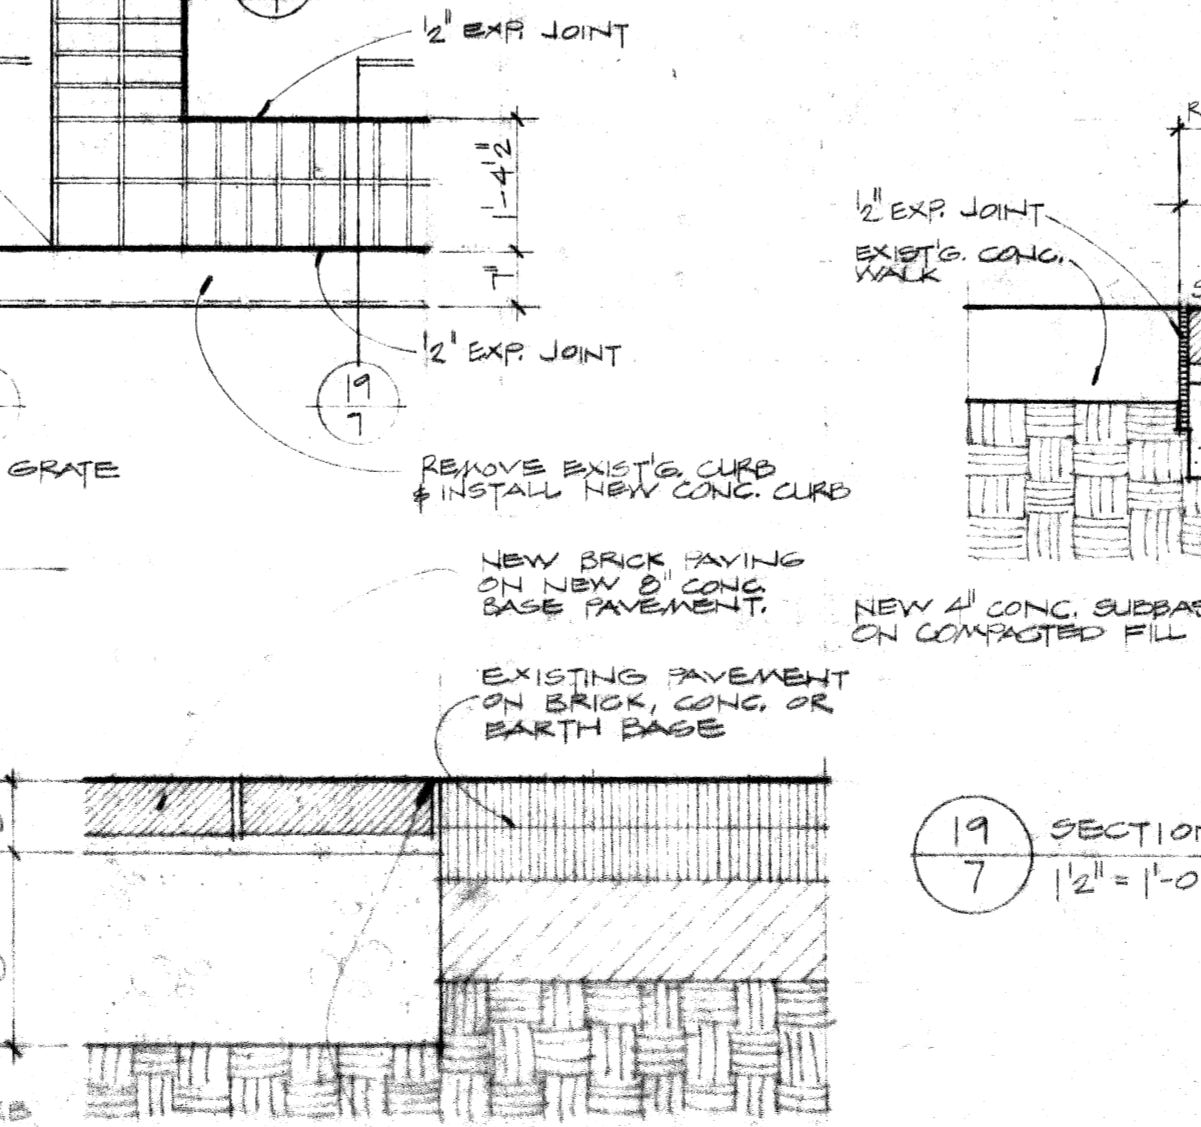 1/2" EXP. JOINT
1'-4 1/2"
7"
1/2" EXP. JOINT
19
7
GRATE
REMOVE EXIST'G. CURB
& INSTALL NEW CONC. CURB
NEW BRICK PAVING
ON NEW 8" CONC.
BASE PAVEMENT.
EXISTING PAVEMENT
ON BRICK, CONC. OR
EARTH BASE
R
1/2" EXP. JOINT
EXIST'G. CONC.
WALK
S
NEW 4" CONC. SUBBAS
ON COMPACTED FILL
19
7
SECTION
1 1/2" = 1'-0